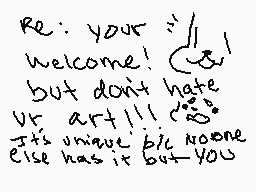 Re: your
welcome!
but don't hate
ur art!!!
It's unique b/c no one
else has it but you